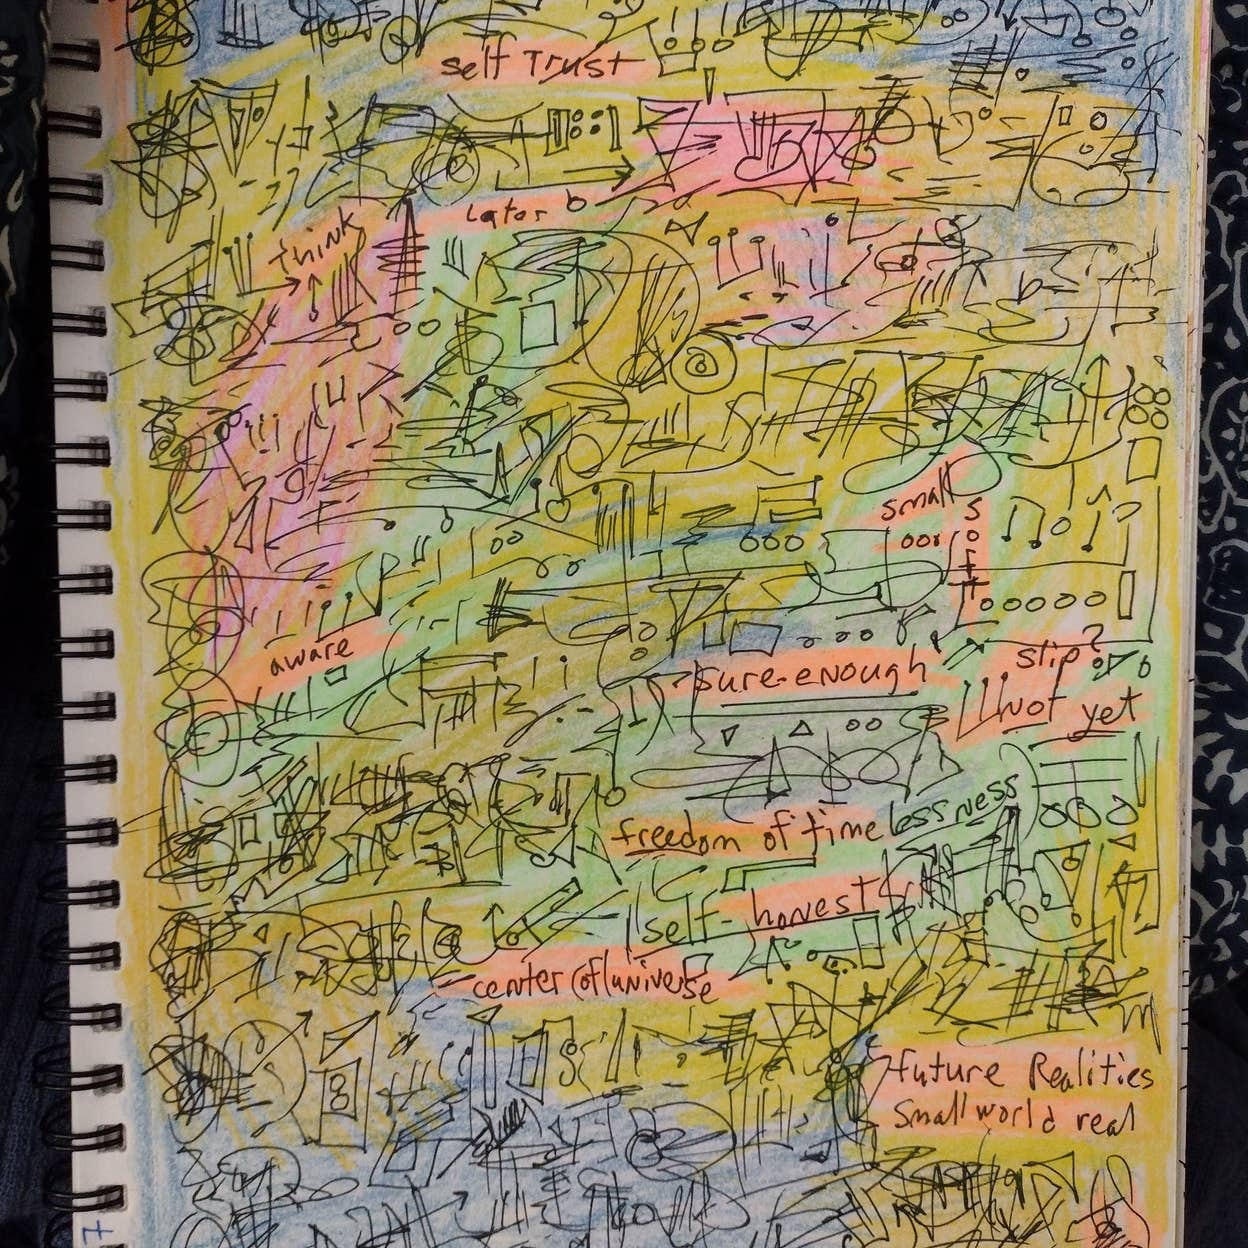 self Trust
Later
think
small
soft
aware
slip?
sure-enough
Not yet
freedom of timelessness
self-honest
center of universe
future Realities
Small world real
7